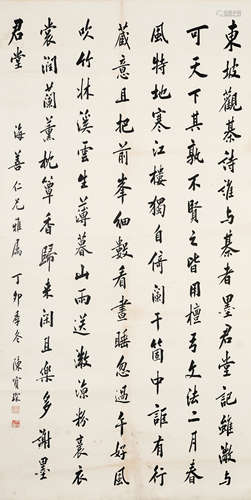 東坡觀棊詩誰与棊者墨君堂記雖微与
可天下其孰不賢之皆用檀弓文法二月春
風特地寒江樓獨自倚闌干箇中詎有行
藏意且把前峯細數看晝睡忽過午好風
吹竹牀溪雲生薄暮山雨送微涼粉裛衣
裳潤蘭薰枕簟香歸來閒且樂多謝墨
君堂
海善仁兄雅屬 丁卯季冬 陳寶琛